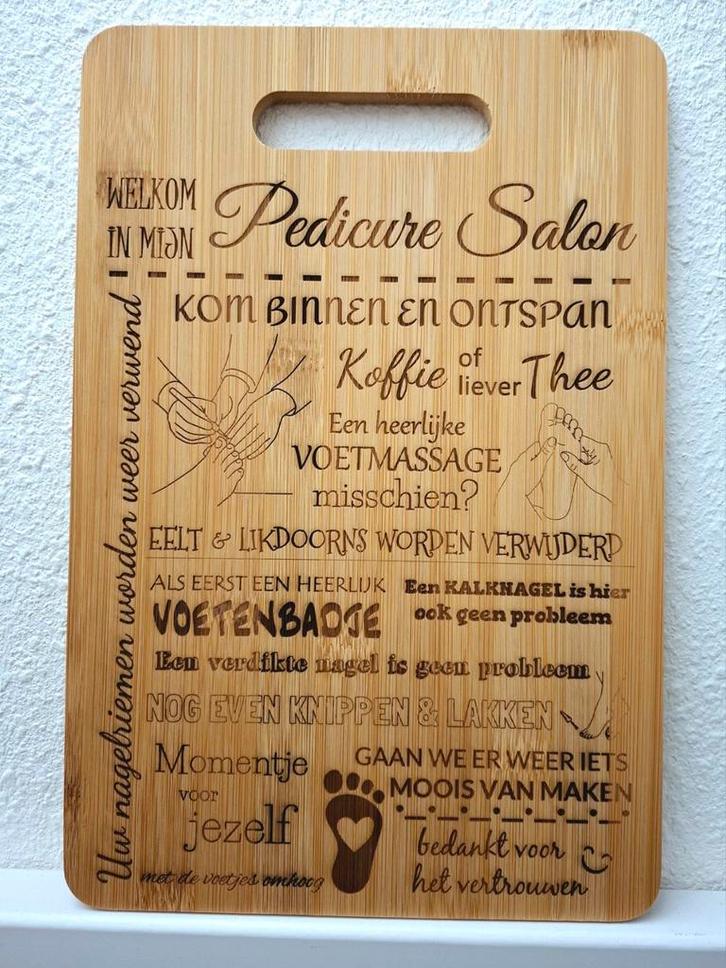 WELKOM
IN MIJN
Pedicure Salon
KOM BINNEN EN ONTSPAN
Koffie of liever Thee
Een heerlijke
VOETMASSAGE
misschien?
EELT & LIKDOORNS WORDEN VERWIJDERD
ALS EERST EEN HEERLIJK
VOETENBADJE
Een KALKNAGEL is hier
ook geen probleem
Een verdikte nagel is geen probleem
NOG EVEN KNIPPEN & LAKKEN
Momentje
voor
jezelf
met de voetjes omhoog
GAAN WE ER WEER IETS
MOOIS VAN MAKEN
bedankt voor
het vertrouwen
Uw nagelriemen worden weer verwend